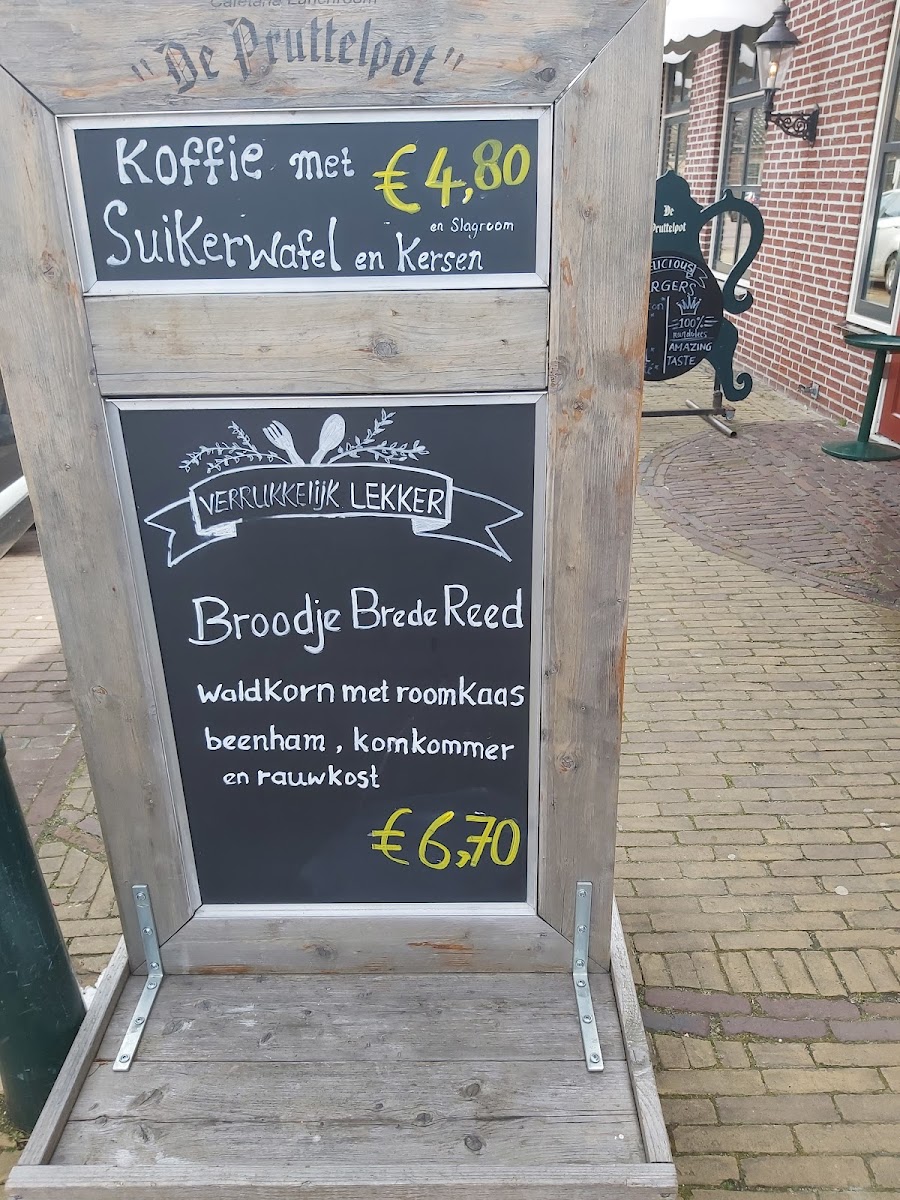 Cafetaria Lunchroom
"De Pruttelpot"
Koffie met €4,80
en Slagroom
Suikerwafel en Kersen
VERRUKKELIJK LEKKER
Broodje Brede Reed
Waldkorn met roomkaas
beenham, komkommer
en rauwkost
€6,70
De
Pruttelpot
100%
AMAZING
TASTE